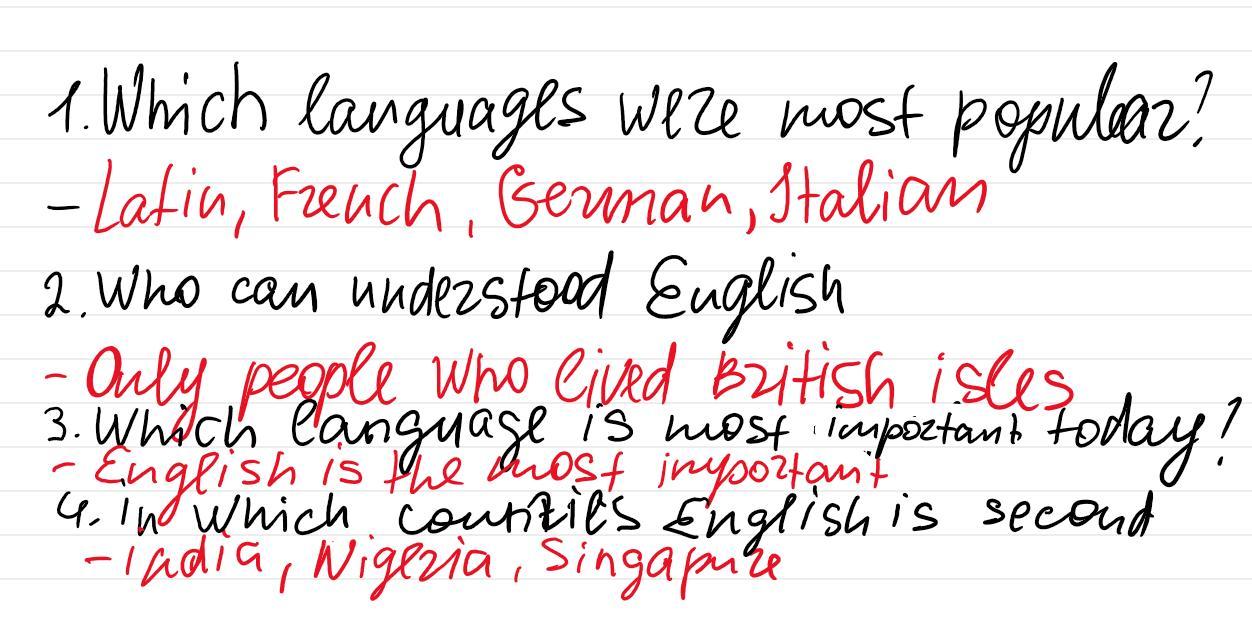 1. Which languages were most popular?
- Latin, French, German, Italian
2. Who can understood English
- Only people who lived British isles
3. Which language is most important today?
- English is the most important
4. In which countries English is second
- India, Nigeria, Singapure